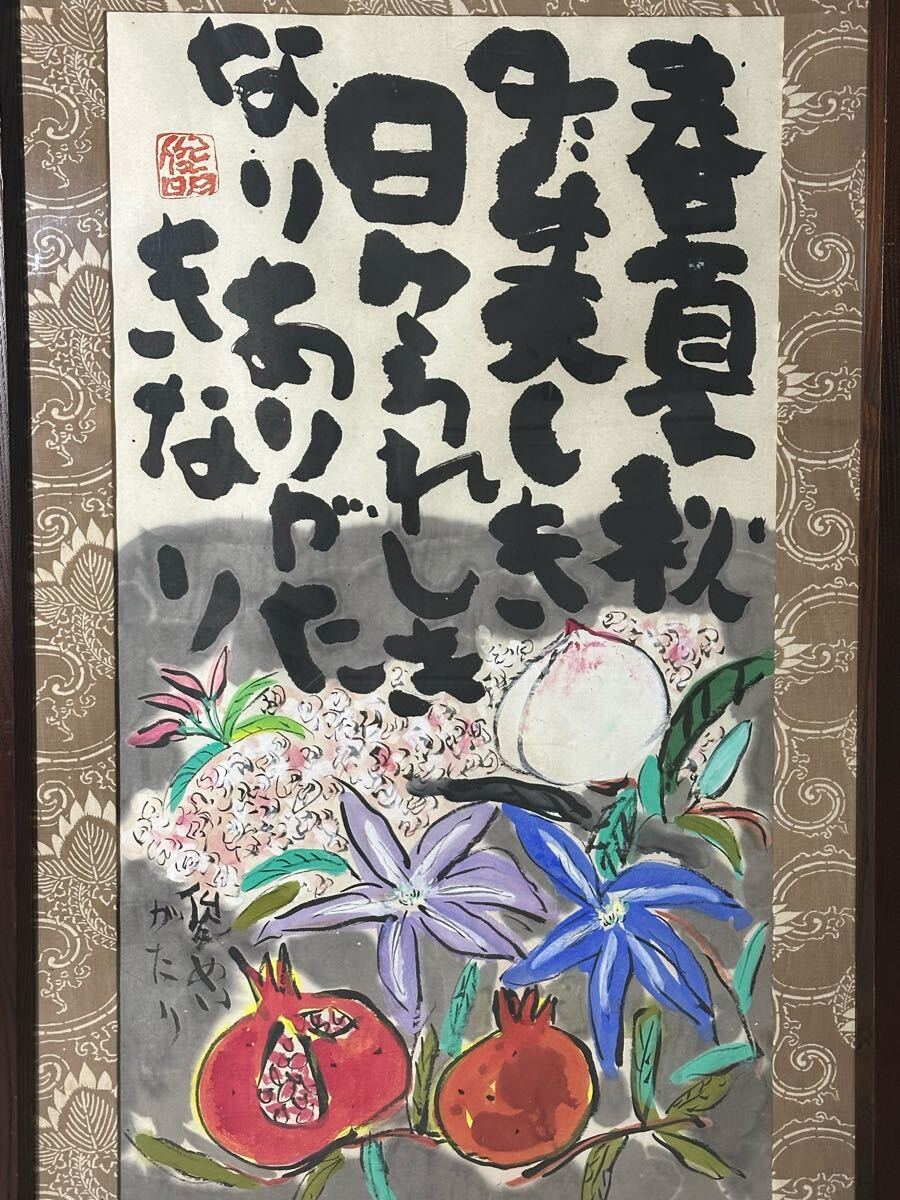 春夏秋
美しき
日々うれしき
なりありがた
きなり
俊明
俊めい
がたり